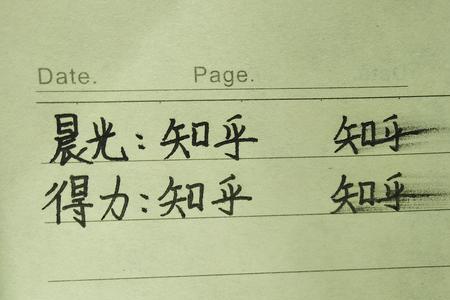 Date. Page.
晨光：知乎 知乎
得力：知乎 知乎